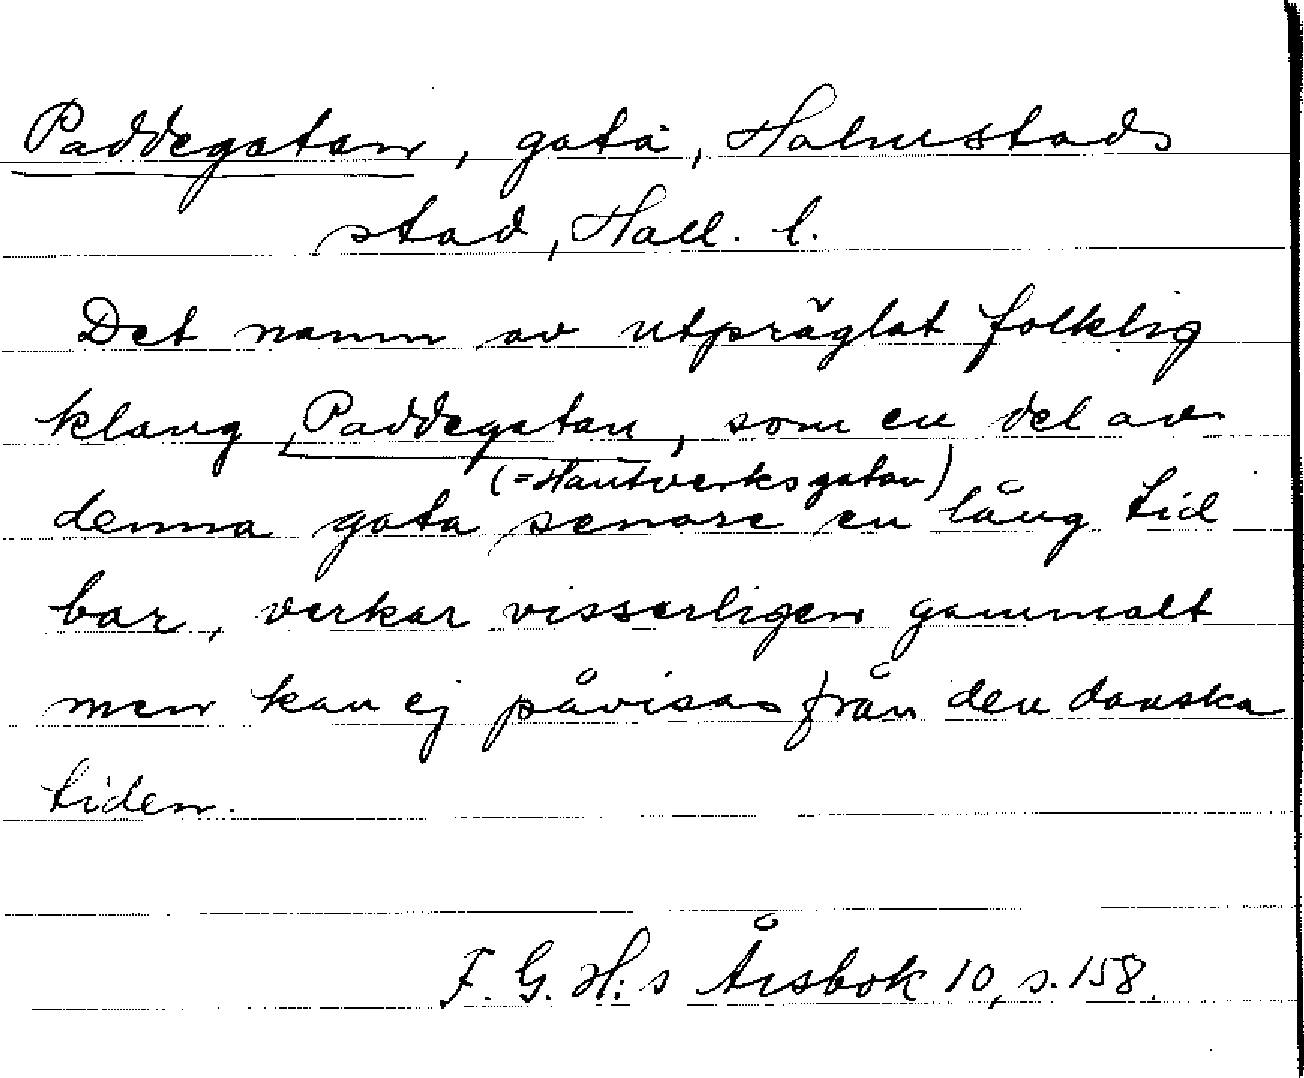 Paddegatan, gata, Halmstads
stad, Hall. l.
Det namn av utpräglat folklig
klang, Paddegatan, som en del av
(=Hantverksgatan)
denna gata senare en lång tid
bar, verkar visserligen gammalt
men kan ej påvisas från den danska
tiden.
F. G. H:s Årsbok 10, s. 158.